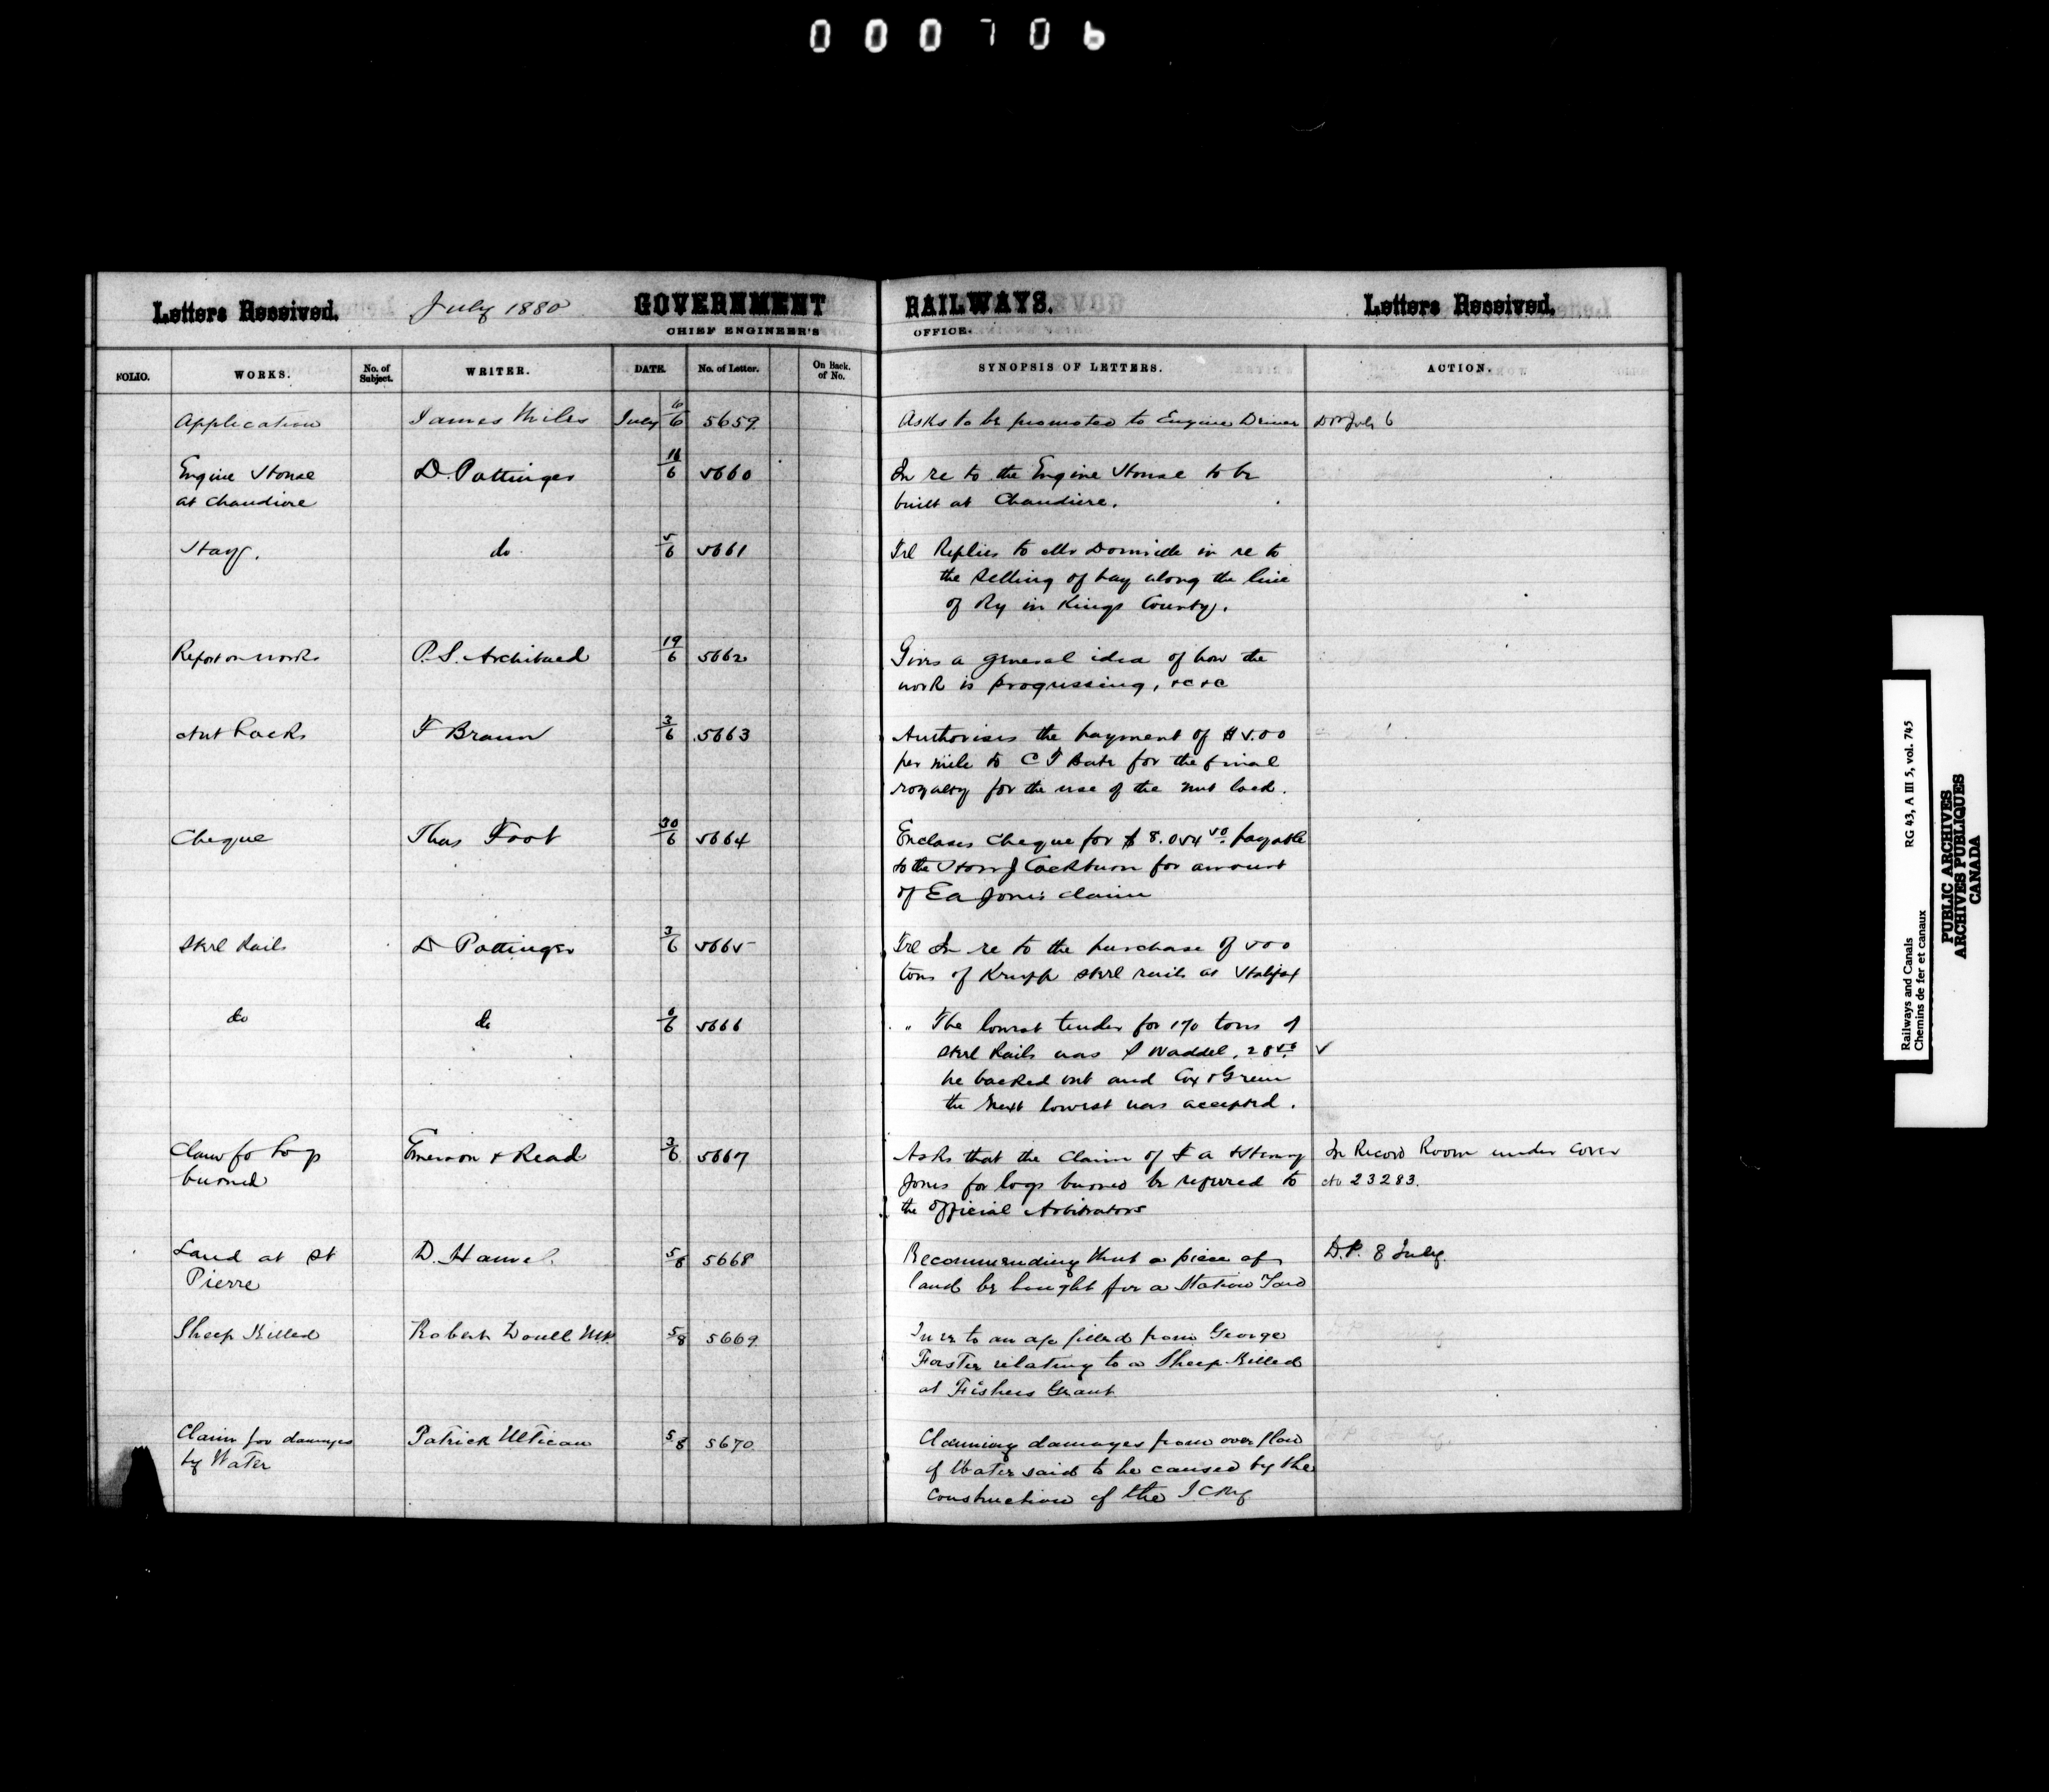 000706
Letters Received. July 1880 GOVERNMENT RAILWAYS. Letters Received.
CHIEF ENGINEER'S OFFICE.
FOLIO. WORKS. No. of Subject. WRITER. DATE. No. of Letter. On Back of No. SYNOPSIS OF LETTERS. ACTION.
Application James Miles July 6/6 5659 Asks to be promoted to Engine Driver July 6
Engine House D. Pottinger 16/6 5660 In re to the Engine House to be
at Chaudiere built at Chaudiere.
Hay. do 5/6 5661 Tel Replies to Mr Domville in re to
the selling of hay along the line
of Ry in Kings County.
Report on works P.S. Archibald 19/6 5662 Gives a general idea of how the
work is progressing, &c &c
Nut Locks F Braun 3/6 5663 Authorises the payment of $5.00
per mile to C T Bate for the final
royalty for the use of the nut lock.
Cheque Thos Foot 30/6 5664 Encloses Cheque for $8.054 50 payable
to the Hon J Cockburn for amount
of Ea Jones claim
Steel Rails D Pottinger 3/6 5665 Tel In re to the purchase of 500
tons of Krupp steel rails at Halifax
do do 6/6 5666 " The lowest tender for 170 tons of
Steel Rails was Waddel, 28 50
he backed out and Cox & Green
the next lowest was accepted.
Claim fo Logs Emerson & Read 3/6 5667 Asks that the Claim of & Henry In Record Room under Cover
burned Jones for logs burned be referred to No 23283.
the Official Arbitrators
Land at St D. Hamel 5/8 5668 Recommending that a piece of D.P. 8 July.
Pierre land be bought for a Station Yard
Sheep Killed Robert Doull M.P. 5/8 5669 In re to an a/c filled from George
Forster relating to a Sheep Killed
at Fishers Grant
Claim for damages Patrick 5/8 5670 Claiming damages from over flow
by Water of Water said to be caused by the
construction of the I C Ry
Railways and Canals RG 43, A III 5, vol. 745
Chemins de fer et canaux
PUBLIC ARCHIVES
ARCHIVES PUBLIQUES
CANADA